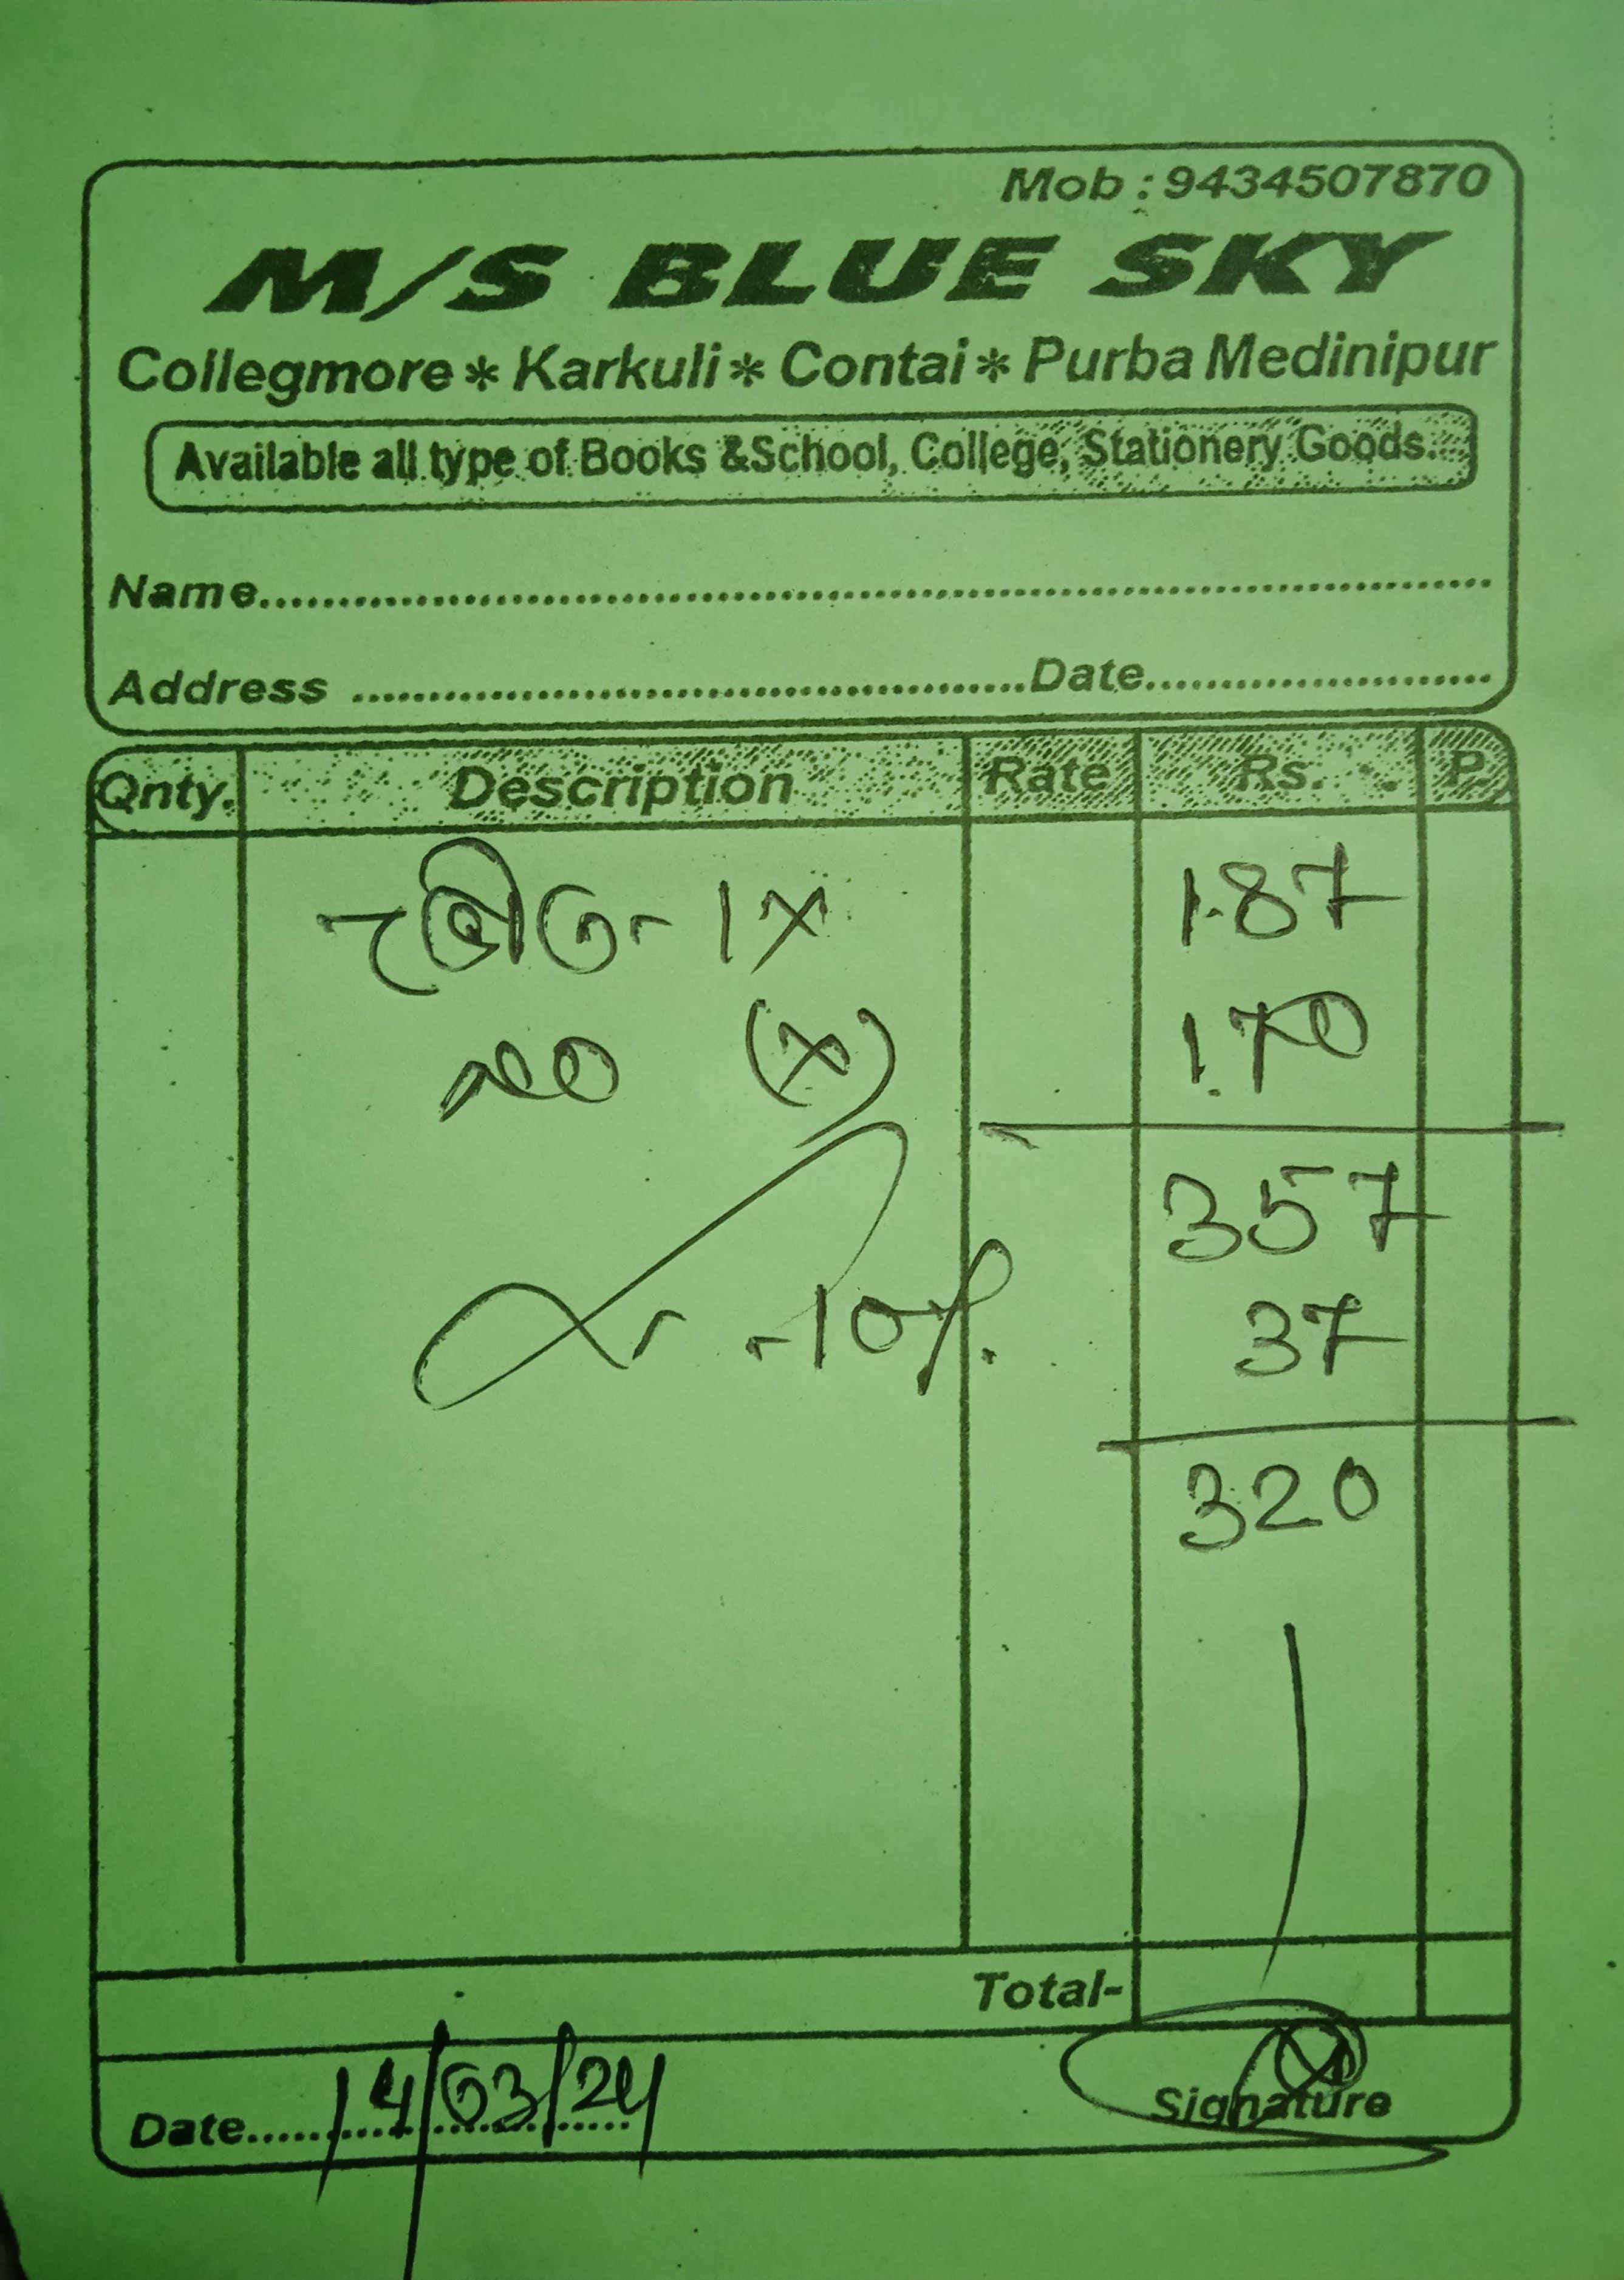 Mob : 9434507870
M/S BLUE SKY
Collegmore * Karkuli * Contai * Purba Medinipur
Available all type of Books &School, College, Stationery Goods.
Name
Address Date
Qnty. Description Rate Rs. P.
1X 187
(X) 170
357
-10%. 37
320
Total-
Date 14/03/24 Signature